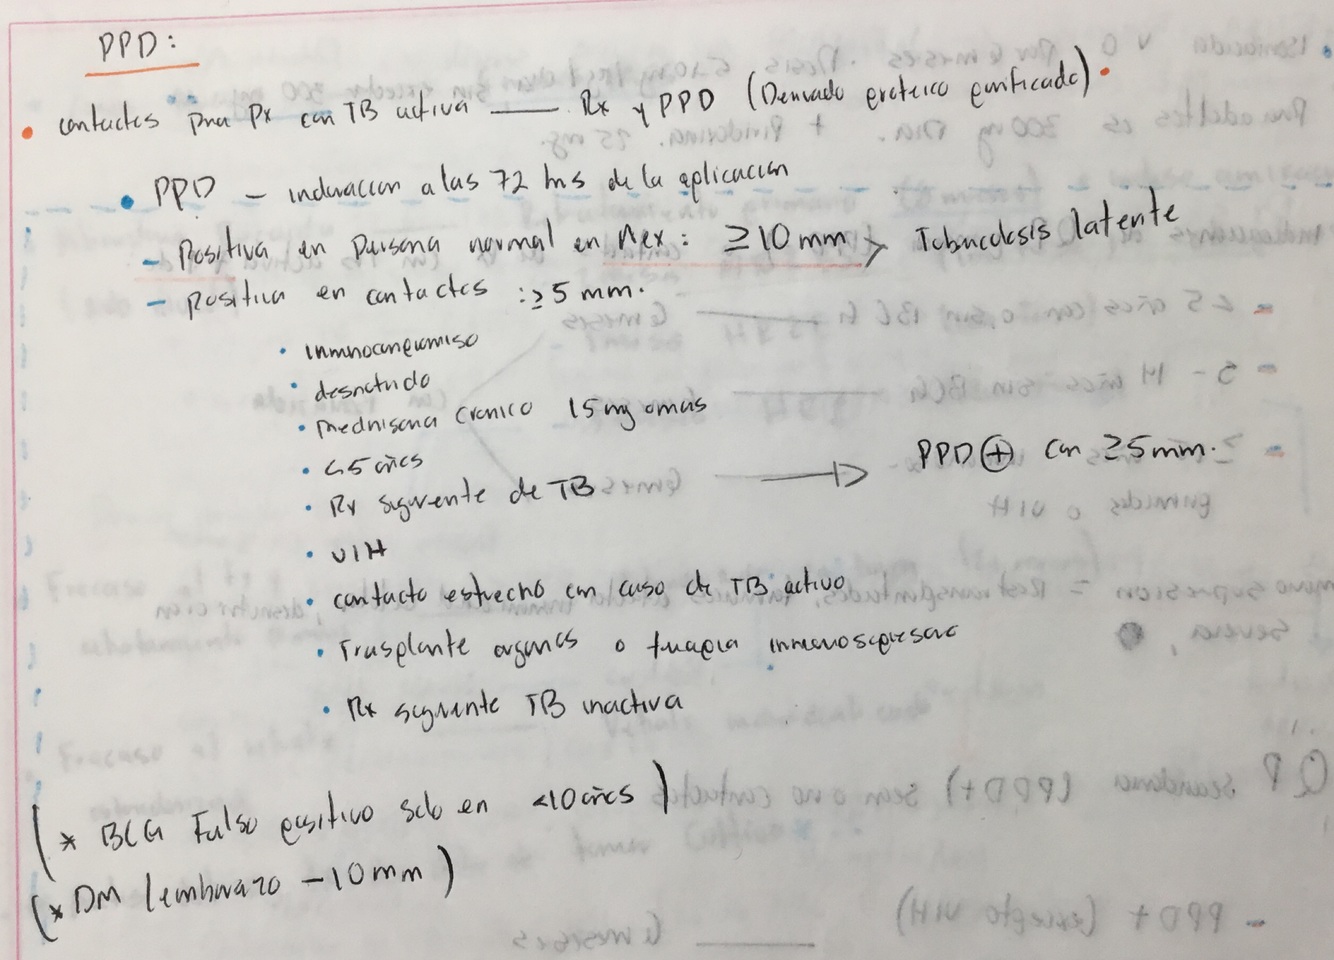 PPD:
• contactos pra Px con TB activa — Rx y PPD (Derivado proteico purificado).
• PPD - induracion a las 72 hrs de la aplicacion
- Positiva en persona normal en Mex: ≥10 mm > Tuberculosis latente
- positiva en contactos : ≥5 mm.
• inmunocompromiso
• desnutrido
• prednisona cronico 15 mg o mas
• <5 años
• Rx sugerente de TB → PPD ⊕ con ≥5mm.
• VIH
• contacto estrecho con caso de TB activo
• Trasplante organos o terapia inmunosupresora
• Rx sugerente TB inactiva
(* BCG Falso positivo solo en <10 años)
(* DM /embarazo - 10mm)